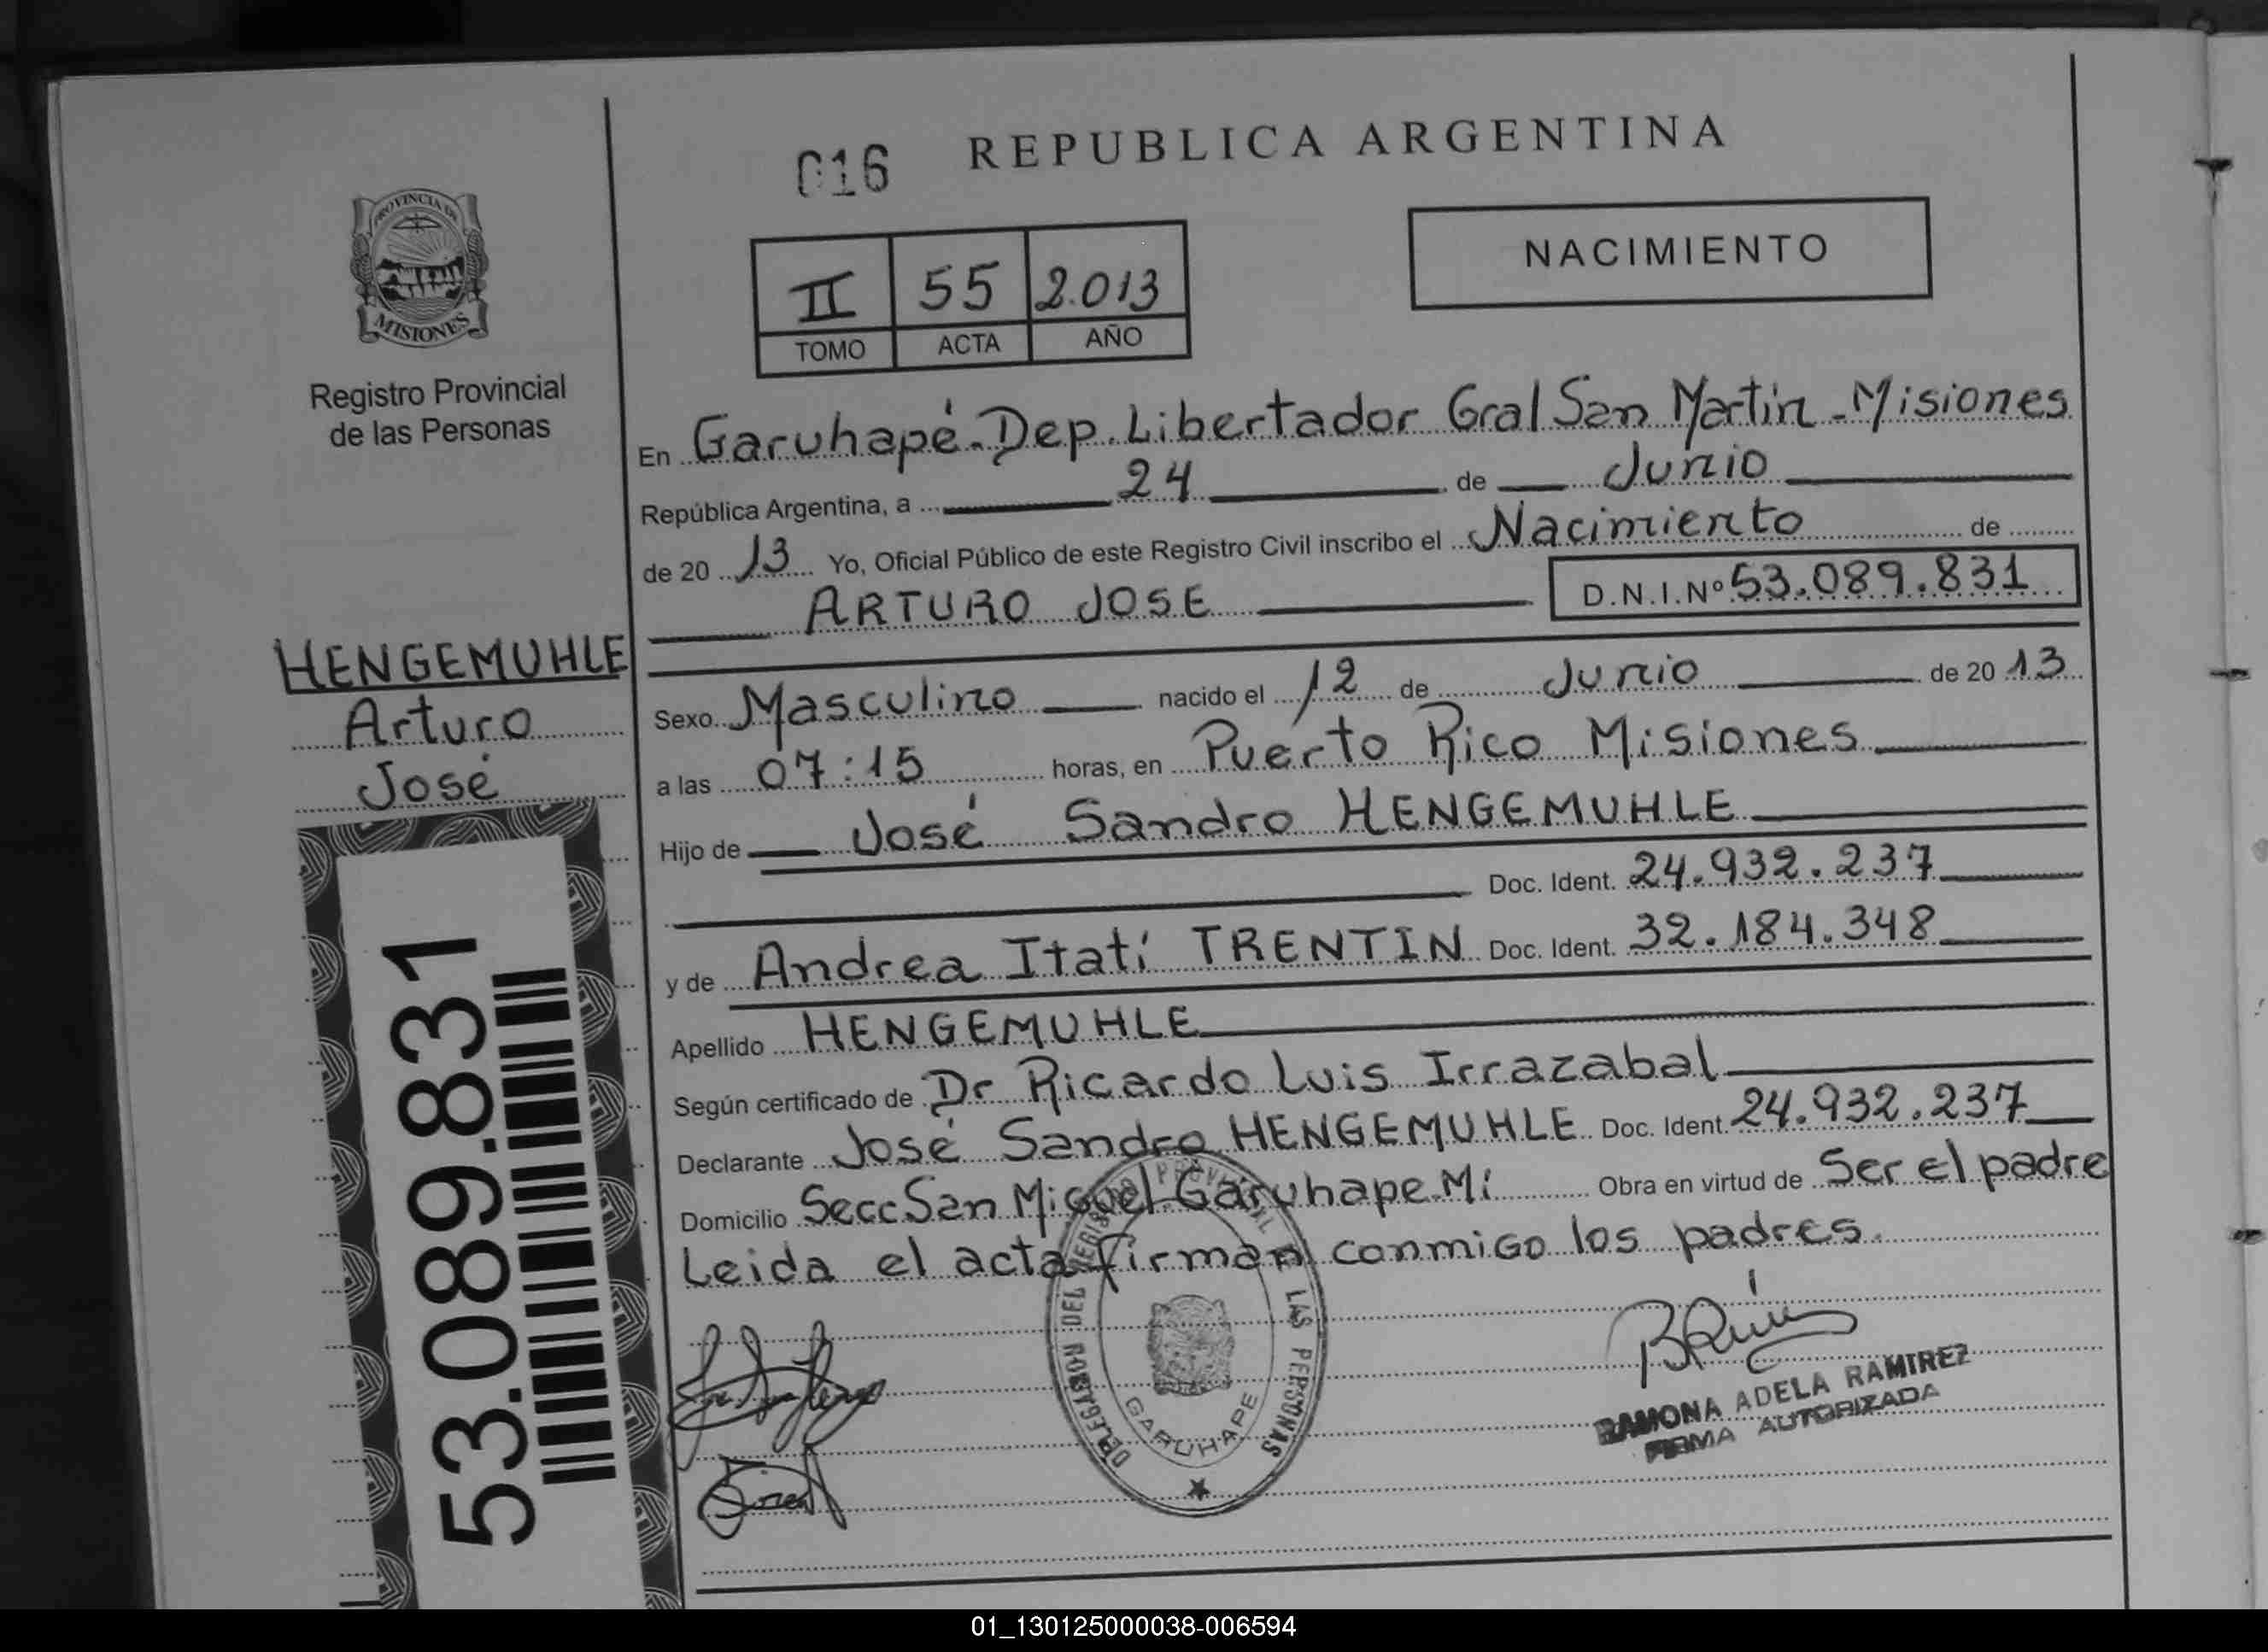 016 REPUBLICA ARGENTINA
PROVINCIA DE
MISIONES
Registro Provincial
de las Personas
NACIMIENTO
II 55 2.013
TOMO ACTA AÑO
En Garuhapé - Dep. Libertador Gral San Martín - Misiones
República Argentina, a 24 de Junio
de 20 13 Yo, Oficial Público de este Registro Civil inscribo el Nacimiento de
ARTURO JOSE D.N.I.Nº 53.089.831
HENGEMUHLE
Arturo
José
Sexo Masculino nacido el 12 de Junio de 20 13
a las 07:15 horas, en Puerto Rico Misiones
Hijo de José Sandro HENGEMUHLE
Doc. Ident. 24.932.237
y de Andrea Itatí TRENTIN Doc. Ident. 32.184.348
Apellido HENGEMUHLE
Según certificado de Dr Ricardo Luis Irrazabal
Declarante José Sandro HENGEMUHLE Doc. Ident. 24.932.237
Domicilio Secc San Miguel Garuhape-Mí Obra en virtud de Ser el padre
Leida el acta firman conmigo los padres.
53.089.831
DELEGACION DEL REGISTRO PROVINCIAL DE LAS PERSONAS
GARUHAPE
RAMONA ADELA RAMIREZ
FIRMA AUTORIZADA
01_130125000038-006594